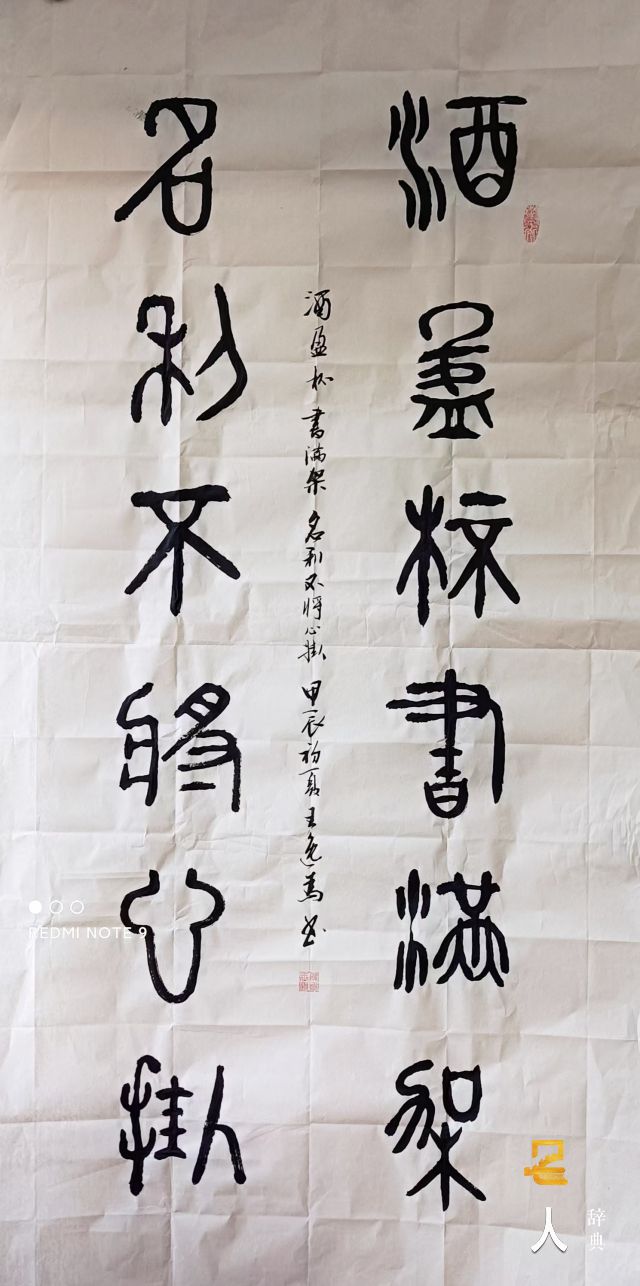 酒盈杯書滿架
酒盈杯書滿架名利不將心掛甲辰初夏王逸為書
名利不將心掛
REDMI NOTE 9
名人
辞典